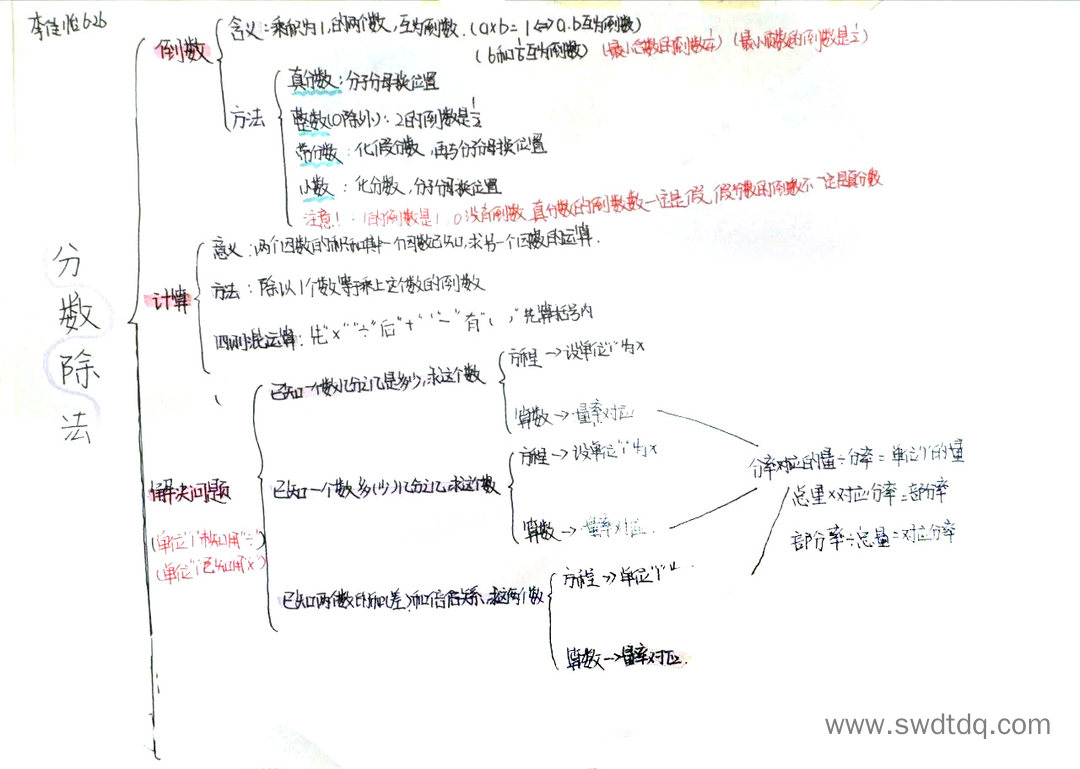 李佳怡626
分数除法
倒数
含义:乘积为1,的两个数,互为倒数.(a×b=1⇔a.b互为倒数)
(b和1/b互为倒数)(最小合数的倒数1/4)(最小质数的倒数是1/2)
方法
真分数:分子分母换位置
整数(0除外):2的倒数是1/2
带分数:化假分数,再与分子分母换位置
小数:化分数,分子分母换位置
注意!:1的倒数是1,0没有倒数,真分数的倒数数一定是假,假分数的倒数不一定是真分数
计算
意义:两个因数的积和其中一个因数已知,求另一个因数的运算.
方法:除以1个数等于乘上这个数的倒数
四则混运算:先"×""÷"后"+""-"有"( )"先算括号内
解决问题
(单位"1"未知用"÷")
(单位"1"已知用"×")
已知一个数几分之几是多少,求这个数
方程→设单位"1"为x
算数→量率对应
已知一个数多(少)几分之几,求这个数
方程→设单位"1"为x
算数→量率对应.
已知两个数的和(差)和倍倍关系,求这两个数
方程→单位"1"
算数→量率对应.
分率对应的量÷分率=单位"1"的量
总量×对应分率=部分率
部分率÷总量=对应分率
www.swdtdq.com